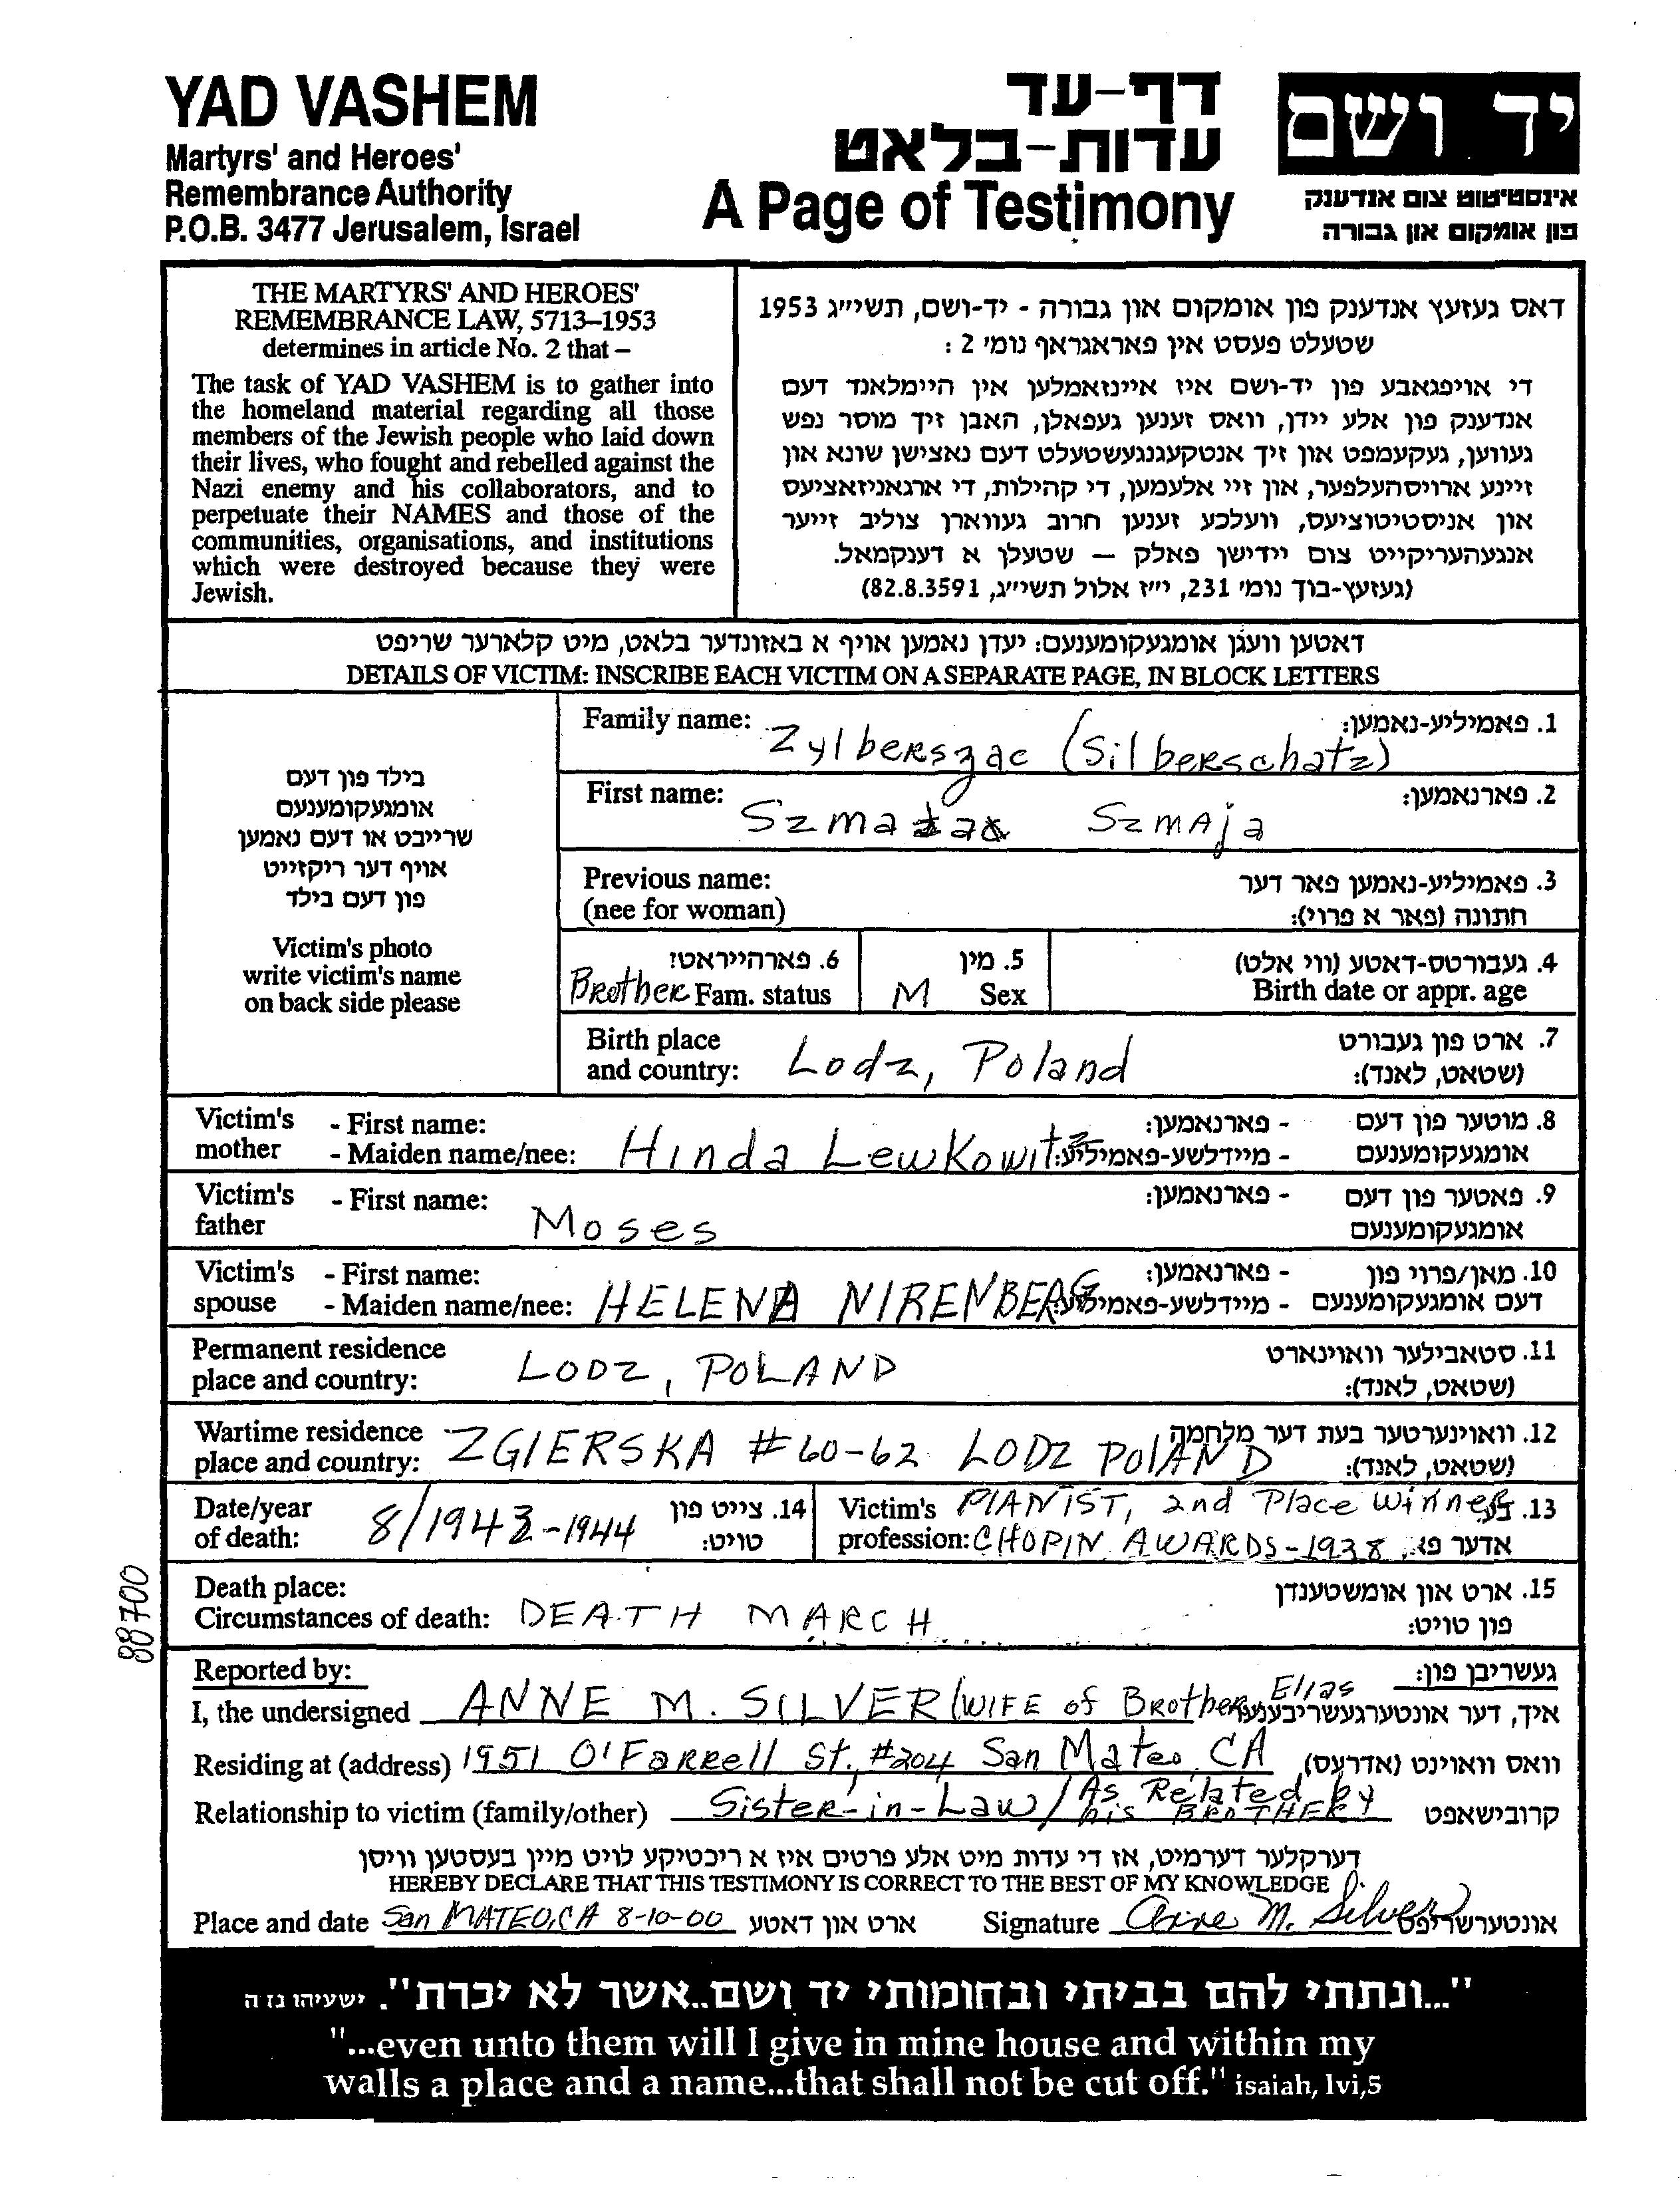 YAD VASHEM
Martyrs' and Heroes'
Remembrance Authority
P.O.B. 3477 Jerusalem, Israel
דף-עד
עדות-בלאט
A Page of Testimony
יד ושם
אינסטיטוט צום אנדענק
פון אומקום און גבורה
THE MARTYRS' AND HEROES'
REMEMBRANCE LAW, 5713–1953
determines in article No. 2 that –
The task of YAD VASHEM is to gather into
the homeland material regarding all those
members of the Jewish people who laid down
their lives, who fought and rebelled against the
Nazi enemy and his collaborators, and to
perpetuate their NAMES and those of the
communities, organisations, and institutions
which were destroyed because they were
Jewish.
דאס געזעץ אנדענק פון אומקום און גבורה - יד-ושם, תשי״ג 1953
שטעלט פעסט אין פאראגראף נומ׳ 2 :
די אויפגאבע פון יד-ושם איז איינזאמלען אין היימלאנד דעם
אנדענק פון אלע יידן, וואס זענען געפאלן, האבן זיך מוסר נפש
געווען, געקעמפט און זיך אנטקעגנגעשטעלט דעם נאצישן שונא און
זיינע ארויסהעלפער, און זיי אלעמען, די קהילות, די ארגאניזאציעס
און אניסטיטוציעס, וועלכע זענען חרוב געווארן צוליב זייער
אנגעהעריקייט צום יידישן פאלק — שטעלן א דענקמאל.
(געזעץ-בוך נומ׳ 231, י״ז אלול תשי״ג, 82.8.3591)
דאטען וועגן אומגעקומענעם: יעדן נאמען אויף א באזונדער בלאט, מיט קלארער שריפט
DETAILS OF VICTIM: INSCRIBE EACH VICTIM ON A SEPARATE PAGE, IN BLOCK LETTERS
בילד פון דעם
אומגעקומענעם
שרייבט או דעם נאמען
אויף דער ריקזייט
פון דעם בילד
Victim's photo
write victim's name
on back side please
Family name: Zylberszac (Silberschatz) 1. פאמיליע-נאמען:
First name: Szmaja 2. פארנאמען:
Previous name: 3. פאמיליע-נאמען פאר דער
(nee for woman) חתונה (פאר א פרוי):
6. פארהייראט? 5. מין 4. געבורטס-דאטע (ווי אלט)
Brother Fam. status M Sex Birth date or appr. age
Birth place 7. ארט פון געבורט
and country: Lodz, Poland (שטאט, לאנד):
Victim's - First name: - פארנאמען: 8. מוטער פון דעם
mother - Maiden name/nee: Hinda Lewkowitz - מיידלשע-פאמיליע: אומגעקומענעם
Victim's - First name: Moses - פארנאמען: 9. פאטער פון דעם
father אומגעקומענעם
Victim's - First name: - פארנאמען: 10. מאן/פרוי פון
spouse - Maiden name/nee: HELENA NIRENBERG - מיידלשע-פאמיליע: דעם אומגעקומענעם
Permanent residence 11. סטאבילער וואוינארט
place and country: LODZ, POLAND (שטאט, לאנד):
Wartime residence 12. וואוינערטער בעת דער מלחמה
place and country: ZGIERSKA #60-62 LODZ POLAND (שטאט, לאנד):
Date/year 14. צייט פון Victim's PIANIST, 2nd Place Winner 13.
of death: 8/1943-1944 טויט: profession: CHOPIN AWARDS-1938 אדער פא
Death place: 15. ארט און אומשטענדן
Circumstances of death: DEATH MARCH פון טויט:
88700
Reported by: געשריבן פון:
I, the undersigned ANNE M. SILVER (WIFE of Brother Elias איך, דער אונטערגעשריבענער
Residing at (address) 1951 O'Farrell St., #204 San Mateo, CA וואס וואוינט (אדרעס)
Relationship to victim (family/other) Sister-in-Law/As Related by his BROTHER קרובישאפט
דערקלער דערמיט, אז די עדות מיט אלע פרטים איז א ריכטיקע לויט מיין בעסטען וויסן
HEREBY DECLARE THAT THIS TESTIMONY IS CORRECT TO THE BEST OF MY KNOWLEDGE
Place and date San MATEO, CA 8-10-00 ארט און דאטע Signature Anne M. Silver אונטערשריפט
"...ונתתי להם בביתי ובחומותי יד ושם..אשר לא יכרת". ישעיהו נז ה
"...even unto them will I give in mine house and within my
walls a place and a name...that shall not be cut off." isaiah, lvi,5